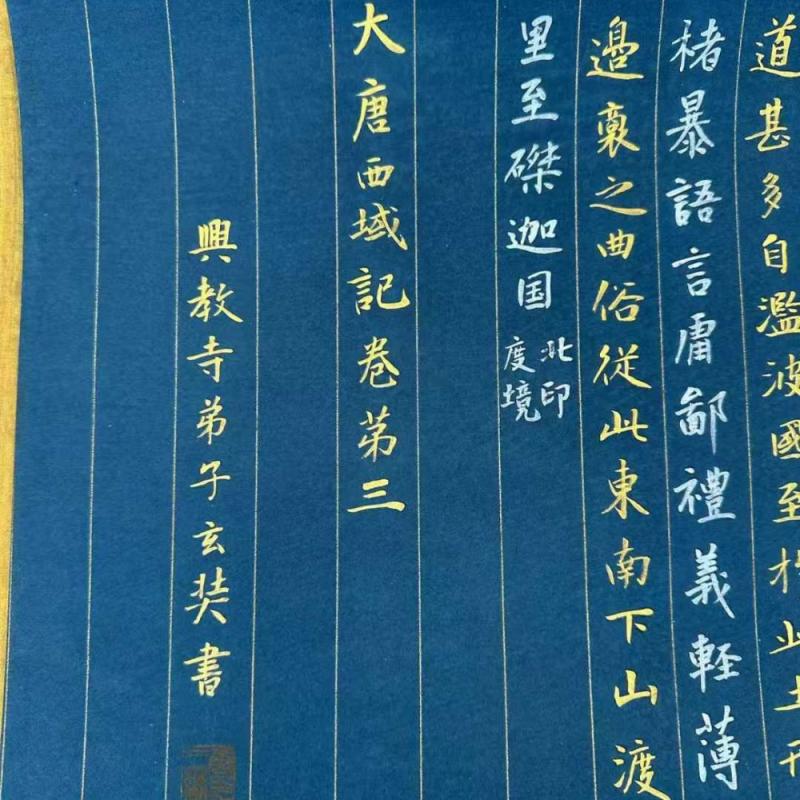 道甚多自濫波國至於此土
暴語言庸鄙禮義軽薄
邉裔之曲俗從此東南下山渡
里至磔迦国
北印
度境
大唐西域記卷第三
興教寺弟子玄奘書